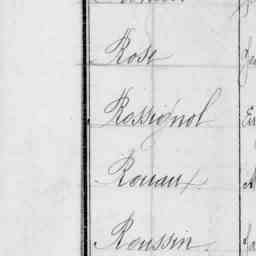 Rose
Rossignol
Rouaux
Roussin